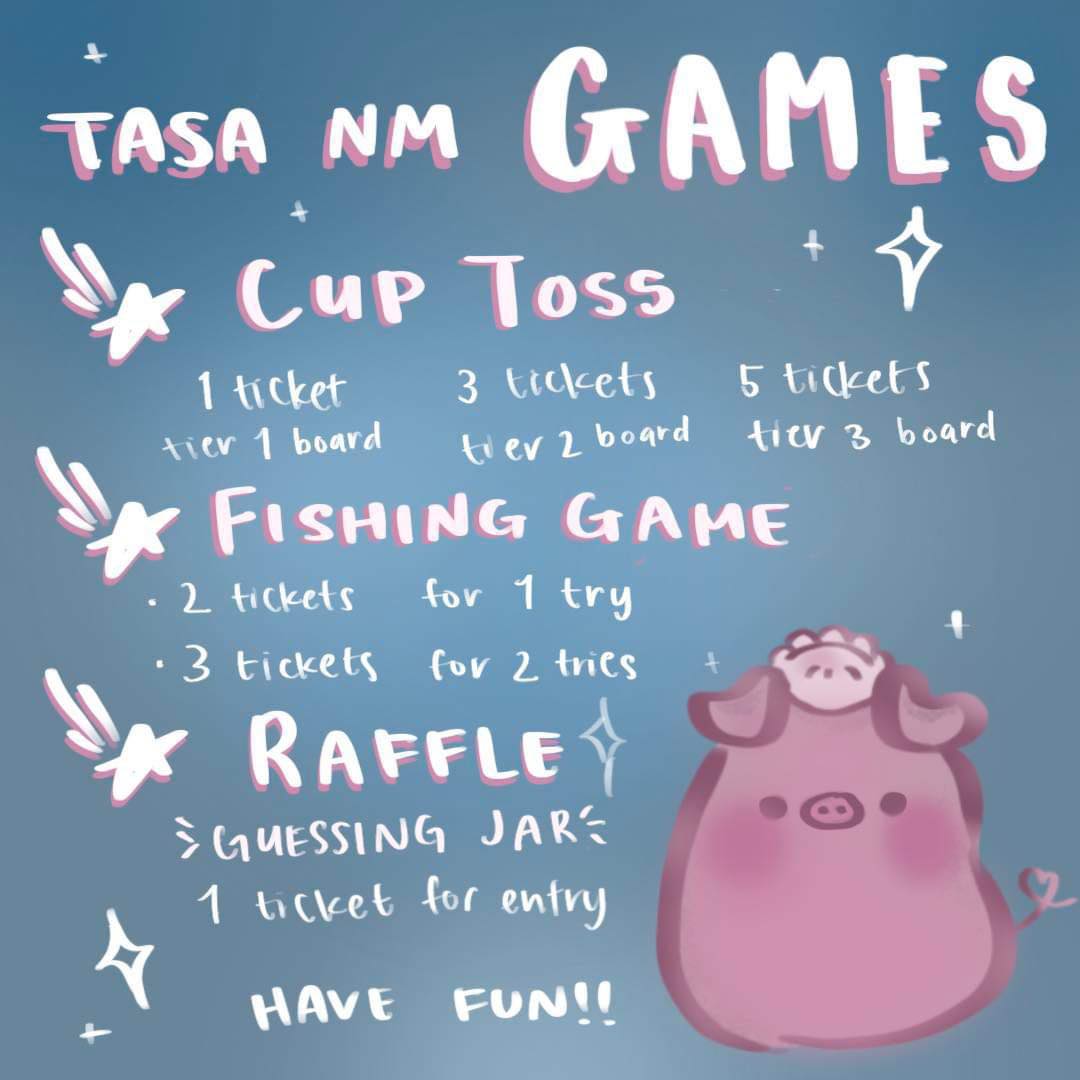 TASA NM GAMES
CUP TOSS
1 ticket 3 tickets 5 tickets
tier 1 board tier 2 board tier 3 board
FISHING GAME
· 2 tickets for 1 try
· 3 tickets for 2 tries
RAFFLE
GUESSING JAR
1 ticket for entry
HAVE FUN!!